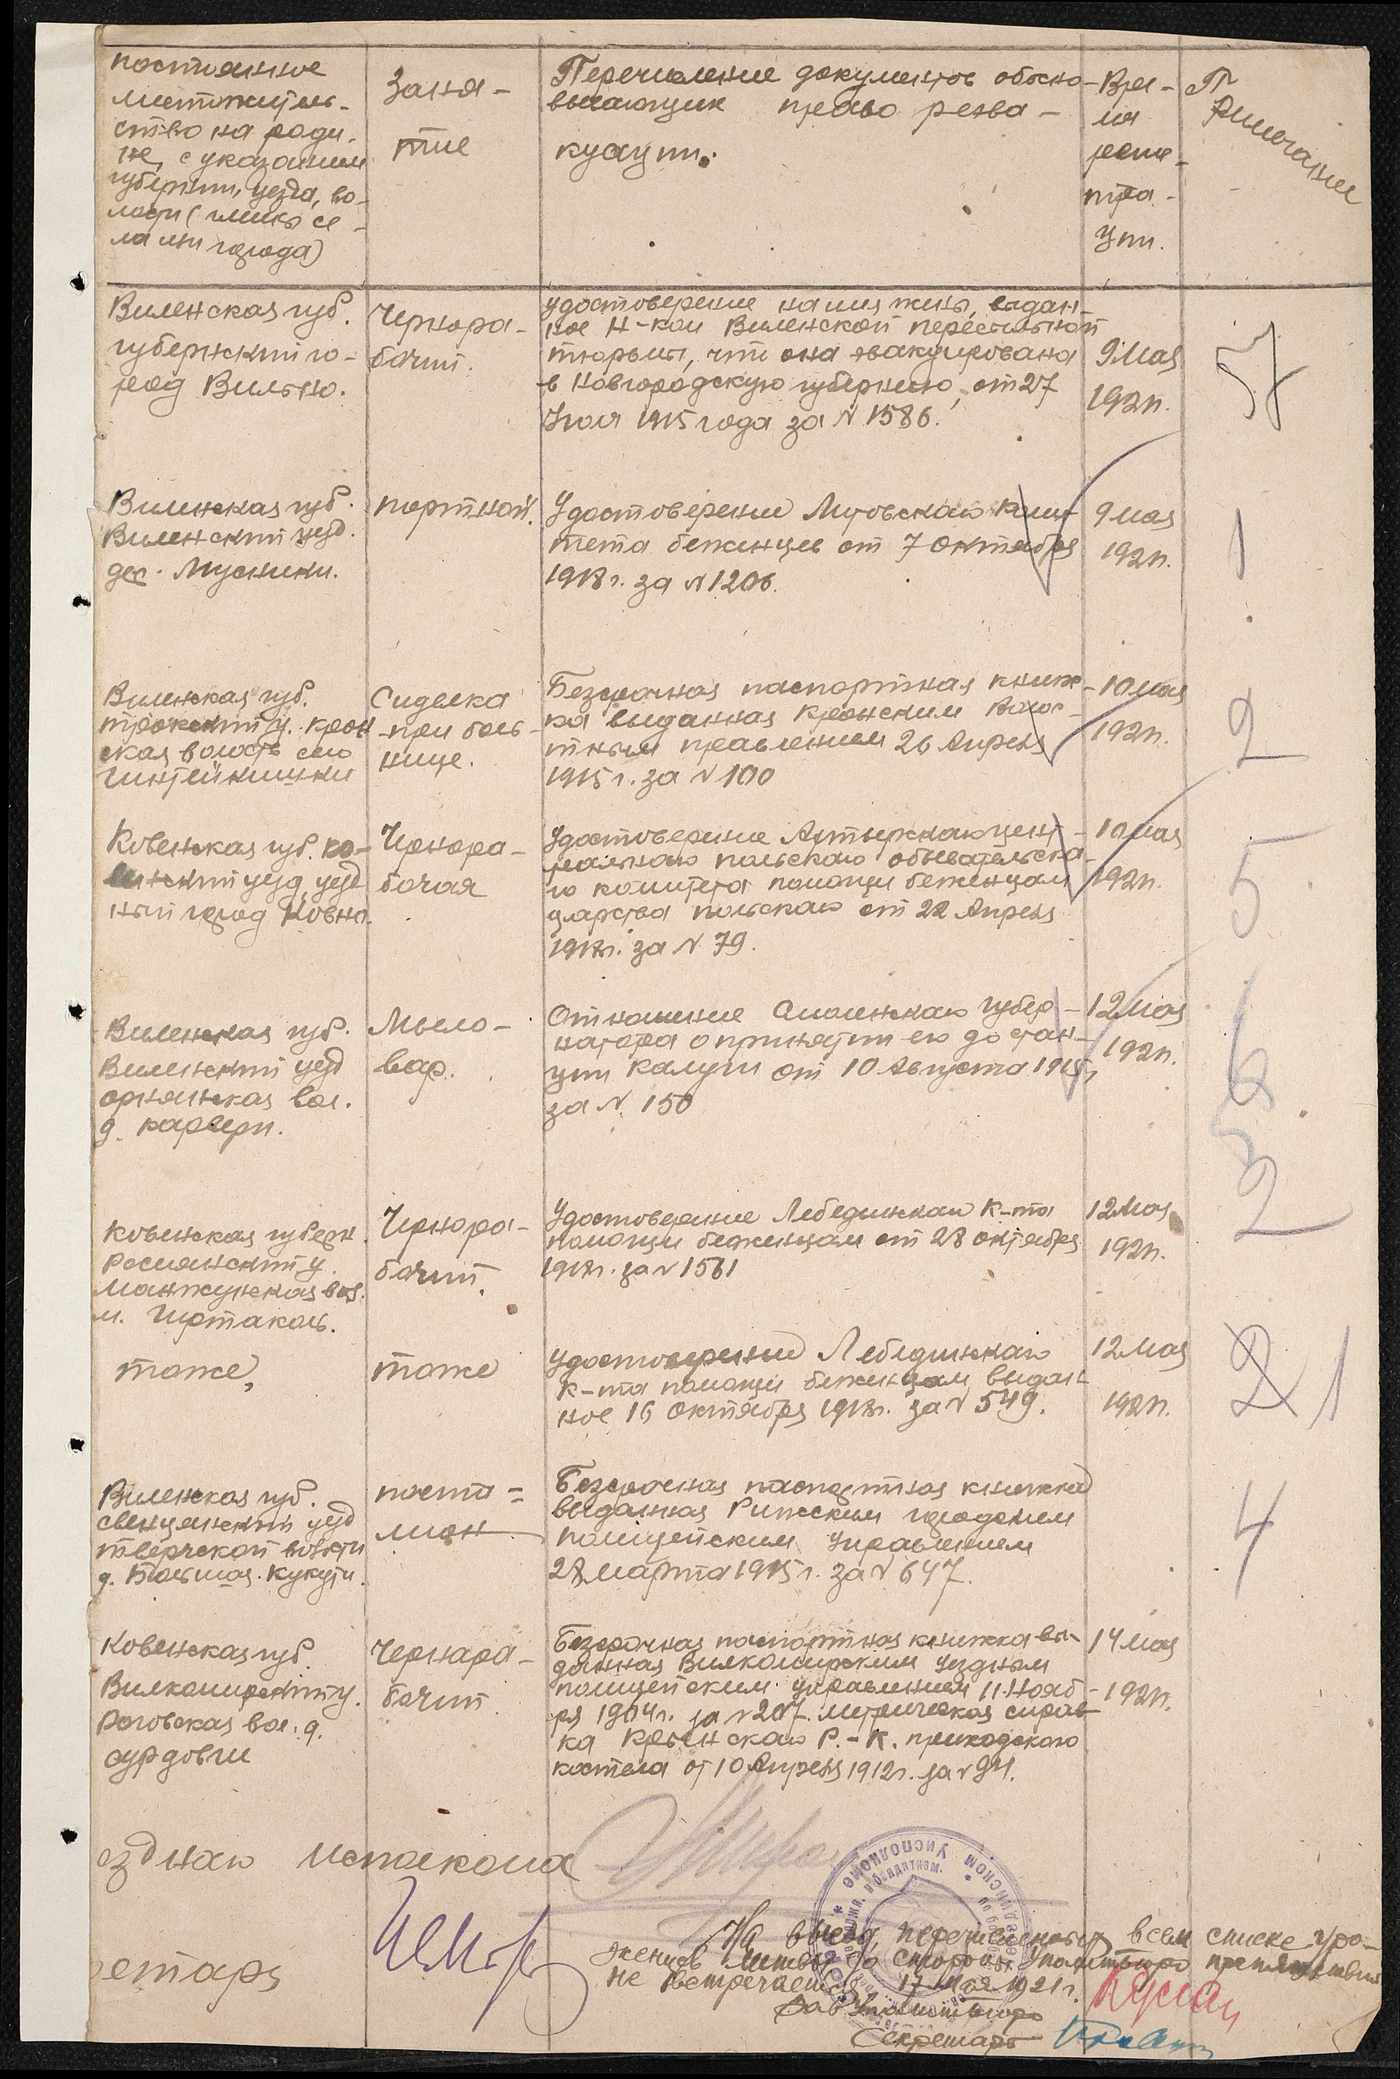 постоянное
местожитель-
ство на роди-
не, с указанием
губернии, уезда, во-
лости (гмины) се-
ла или города)
Заня-
тие
Перечисление документов обосно-
вывающих право реэва-
куации.
Вре-
мя
реги-
стра-
ции.
Примечание
Виленская губ.
губернский го-
род Вильно.
Чернора-
бочий.
удостоверение на имя жены, выдан-
ное Н-кои Виленской пересыльной
тюрьмы, что она эвакуирована
в Новгородскую губернию, от 27
Июля 1915 года за N 1586.
9 Мая
1921г.
5
Виленская губ.
Виленский уезд.
дер. Мусники.
портной.
Удостоверение Литовскаго Коми-
тета беженцев от 7 Октября
1918г. за N 1206.
9 мая
1921г.
1
Виленская губ.
Трокский у. Крон
ская волость село
Гинтейкишки
Сиделка
при боль-
нице.
Безсрочная паспортная книж-
ка выданная Кронским Волос-
тным правлением 26 Апреля
1915г. за N 100
10 мая
1921г.
2
Ковенская губ. Ко-
венский уезд, уезд
ный город Ковна.
Чернора-
бочая
Удостоверение Центр-
ральнаго польскаго обывательска-
го комитета помощи беженцам
царства польскаго от 22 Апреля
1918г. за N 79.
10 мая
1921г.
5
Виленская губ.
Виленский уезд
вол.
д. Карвери.
Мыло-
вар.
Отношение Смоленскаго Губер-
натора о принятии его до стан-
ции Калуги от 10 Августа 1915г
за N 150
12 Мая
1921г.
6
Ковенская губерн.
Росиянский у.
вол.
м. Гиртаколь.
Чернора-
бочий.
Удостоверение Лебединскаго К-та
помощи беженцам от 28 октября
1918г. за N 1561
12 Мая
1921г.
2
тоже,
тоже
удостоверение Лебединскаго
К-та помощи беженцам выдан
ное 16 октября 1918г. за N 549.
12 Мая
1921г.
2 1
Виленская губ.
Свенцянский уезд
Тверечской волости
д. Большая Кукути.
почта=
лион
Безсрочная паспортная книжка
выданная Рижским городским
полицейским Управлением
28 Марта 1915г. за N 647.
4
Ковенская губ.
Вилкомирский у.
Роговская вол. д.
Сурдовги
Чернара-
бочий
Безсрочная паспортная книжка вы-
данная Вилкомирским уездным
полицейским управлением 11 Нояб-
ря 1904г. за N 207. метрическая справ-
ка Р.-К. приходского
костела от 10 Апреля 1912г. за N 94.
14 мая
1921г.
ездного исполкома
ретарь
На выезд перечисленных в сем списке уро-
женцев Литвы со стороны Уполитбюро препятствий
не встречается 17 Мая 1921г.
Зав Уполитбюро
Секретарь